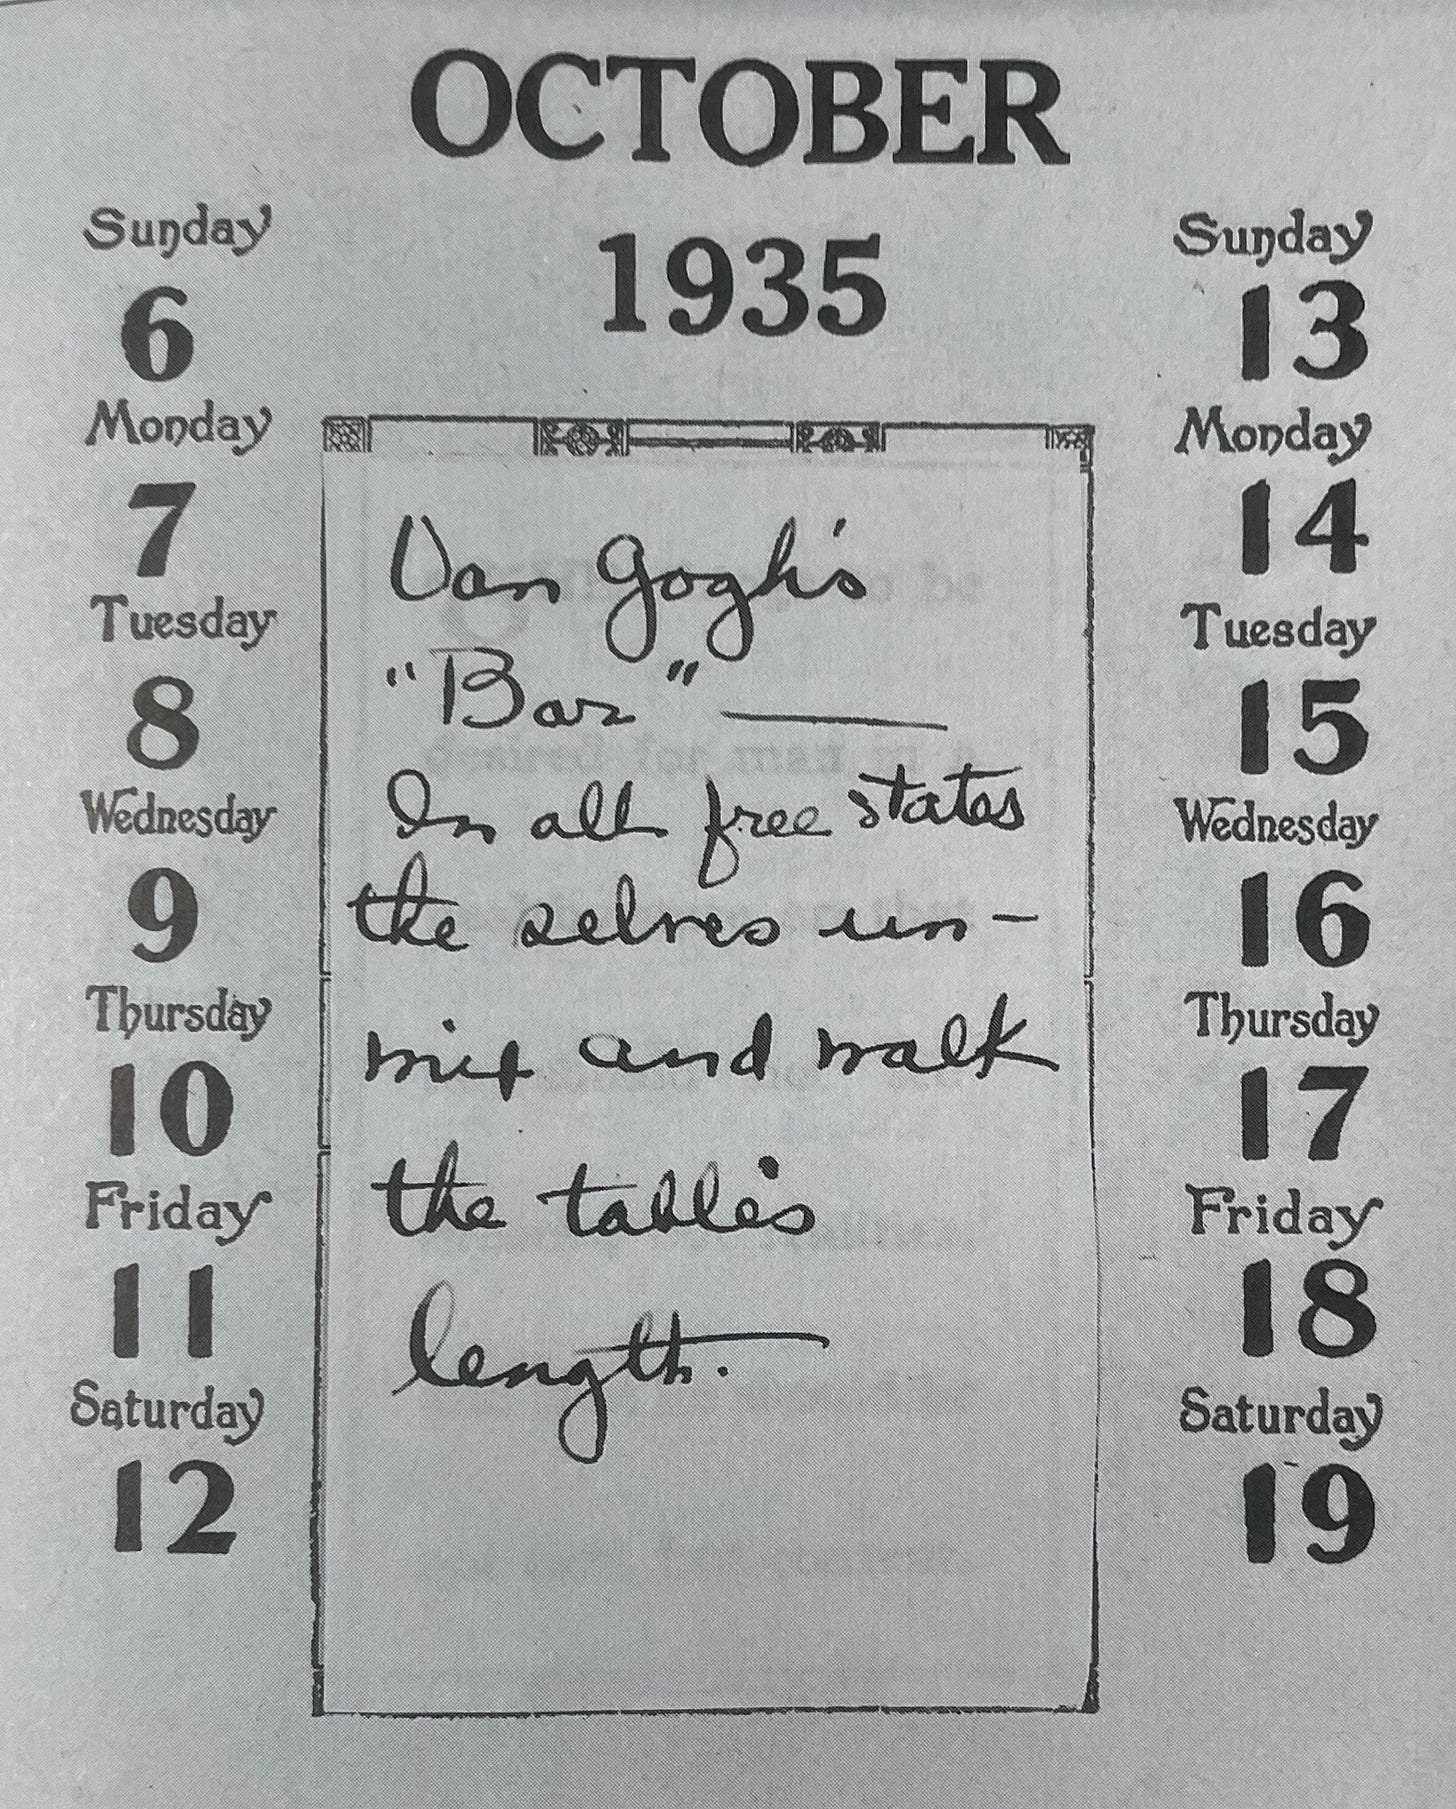 OCTOBER
1935
Sunday
6
Monday
7
Tuesday
8
Wednesday
9
Thursday
10
Friday
11
Saturday
12
Van Gogh's
"Bar" —
In all free states
the selves un-
mix and walk
the table's
length.
Sunday
13
Monday
14
Tuesday
15
Wednesday
16
Thursday
17
Friday
18
Saturday
19